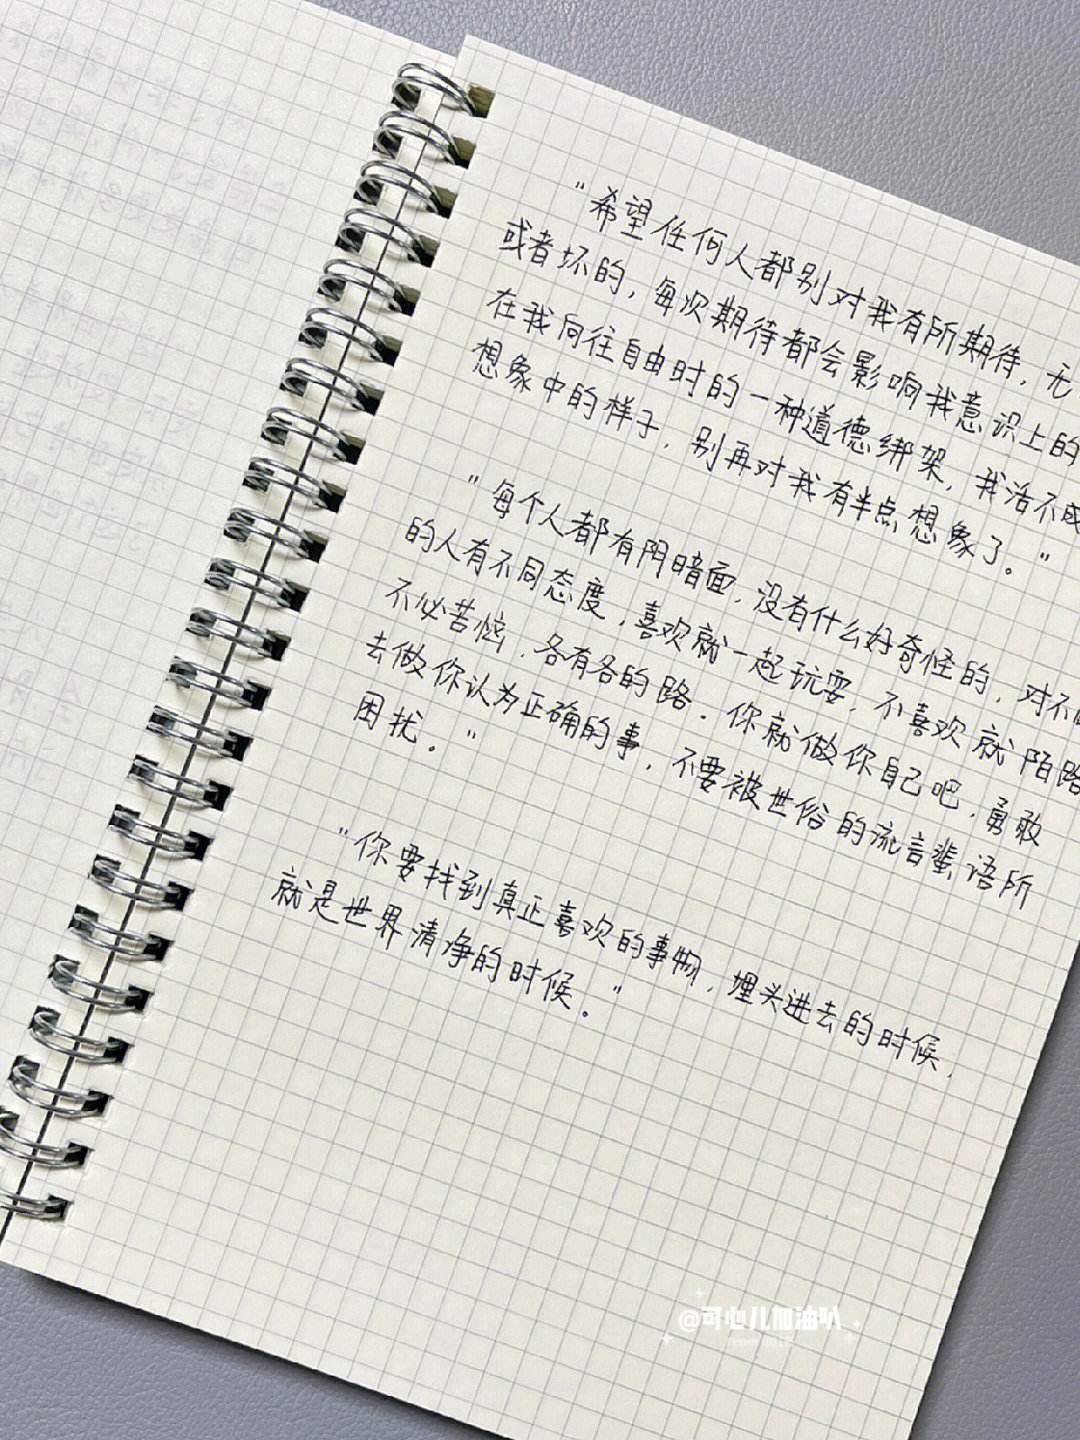 "希望任何人都别对我有所期待，无
或者坏的，每次期待都会影响我意识上的
在我向往自由时的一种道德绑架，我活不成
想象中的样子，别再对我有半点想象了。"
"每个人都有阴暗面，没有什么好奇怪的，对不
的人有不同态度，喜欢就一起玩耍，不喜欢就陌路
不必苦恼，各有各的路。你就做你自己吧，勇敢
去做你认为正确的事，不要被世俗的流言蜚语所
困扰。"
"你要找到真正喜欢的事物，埋头进去的时候，
就是世界清净的时候。"
@可心儿加油叭